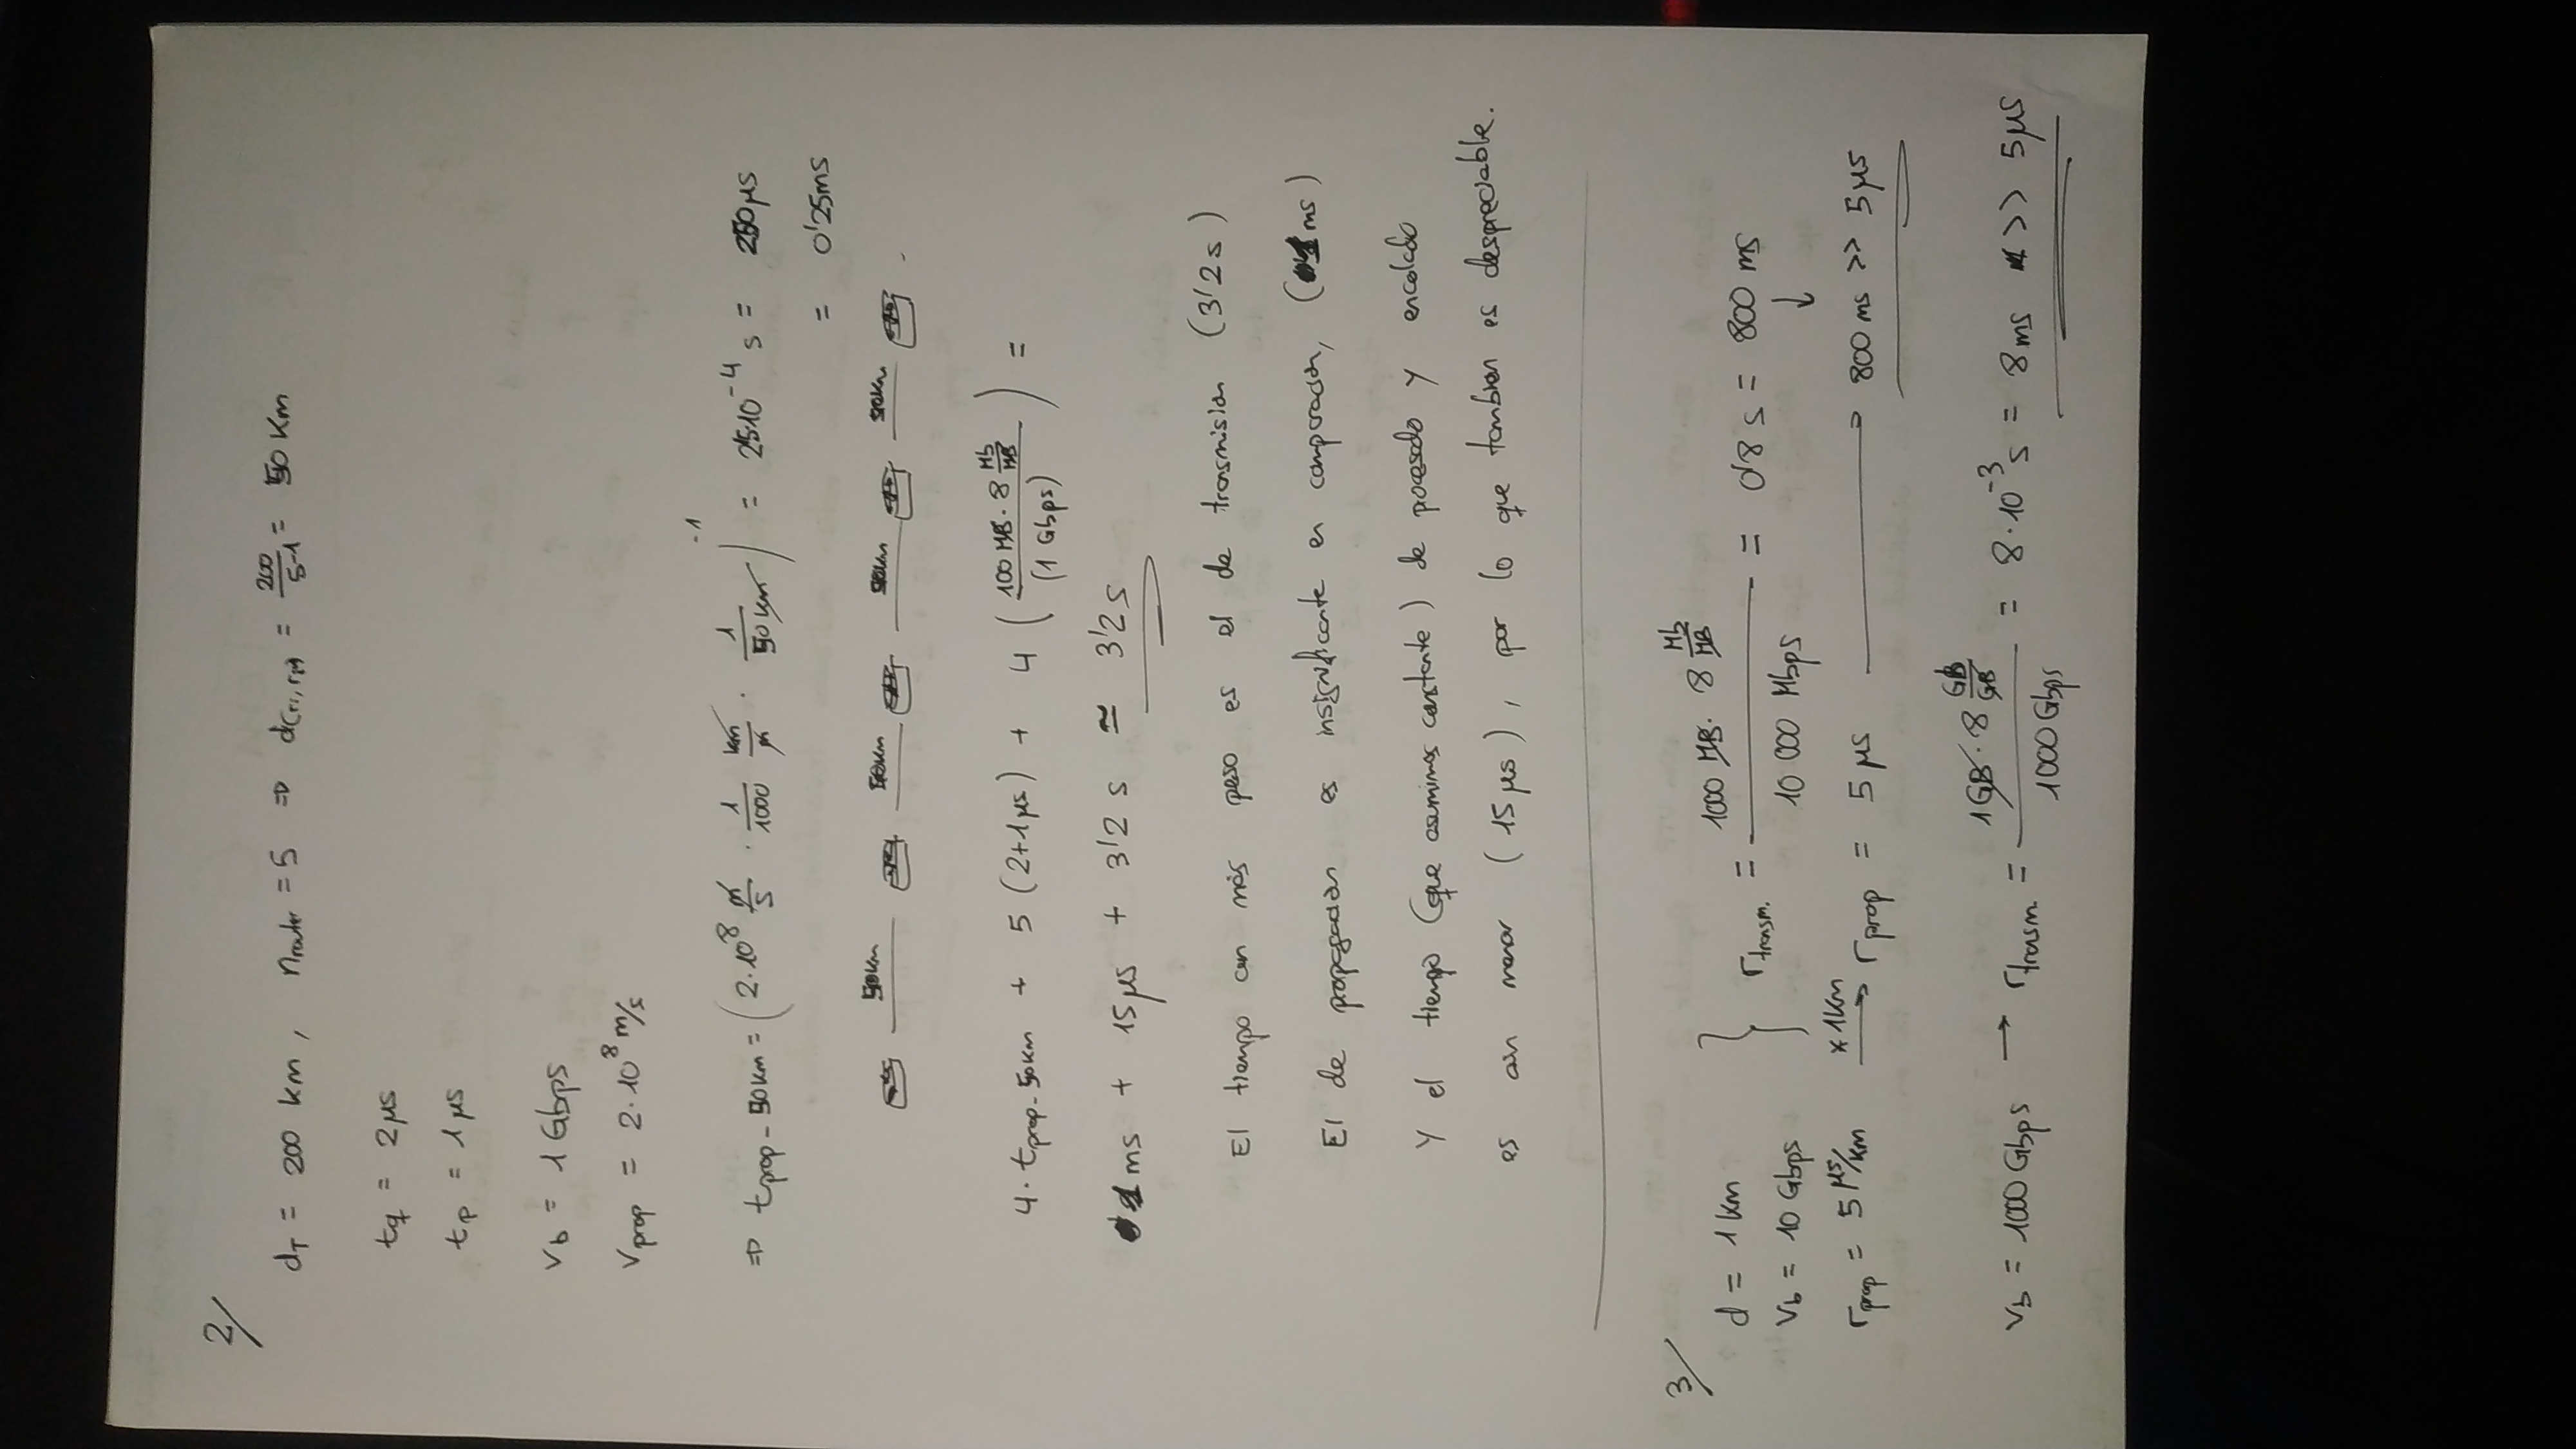 2/
d_T = 200 km, n_router = 5 ⇒ d(ri, rj) = 200/(5-1) = 50 Km
t_q = 2 μs
t_p = 1 μs
v_b = 1 Gbps
v_prop = 2·10^8 m/s
⇒ t_prop-50km = (2·10^8 m/s · 1/1000 km/m · 1/50 km)^-1 = 2'5·10^-4 s = 250 μs
= 0'25 ms
50km 50km 50km 50km
4 · t_prop-50km + 5 (2+1 μs) + 4 (100 MB · 8 Mb/MB / (1 Gbps)) =
1 ms + 15 μs + 3'2 s ≃ 3'2 s
El tiempo con más peso es el de trasmisión (3'2 s)
El de propagación es insignificante en comparación, (1 ms)
Y el tiempo (que asumimos constante) de procesado y encolado
es aún menor (15 μs), por lo que tambien es despreciable.
3/
d = 1 Km
v_b = 10 Gbps } r_trasm. = 1000 MB · 8 Mb/MB / 10 000 Mbps = 0'8 s = 800 ms
r_prop = 5 μs/km —×1Km→ r_prop = 5 μs → 800 ms >> 5 μs
v_b = 1000 Gbps → r_trasm. = 1 GB · 8 Gb/GB / 1000 Gbps = 8·10^-3 s = 8 ms >> 5 μs